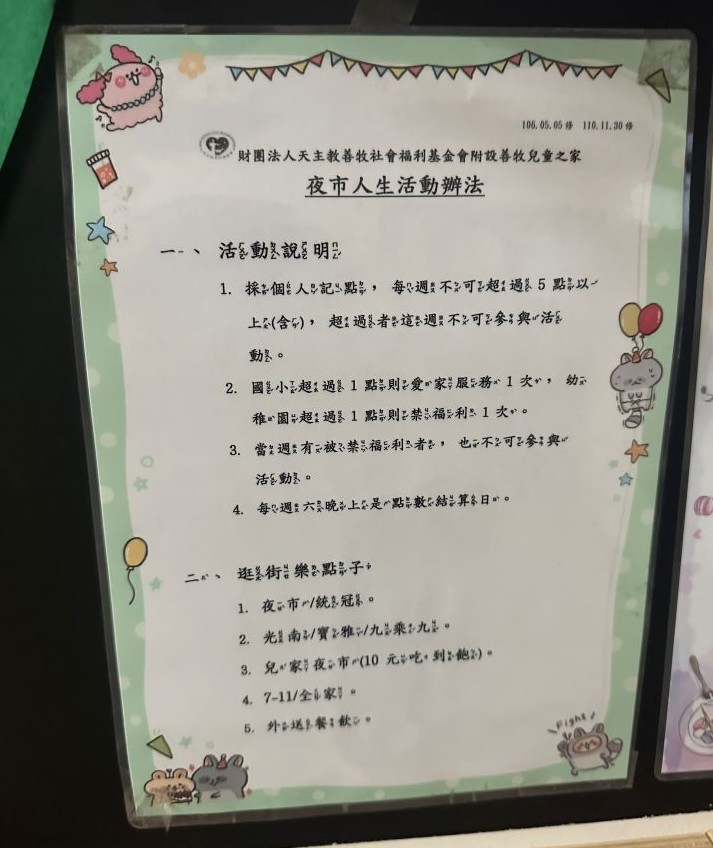 106.05.05修 110.11.30修
財團法人天主教善牧社會福利基金會附設善牧兒童之家
夜市人生活動辦法
一、 活動說明
1. 採個人記點，每週不可超過 5 點以
上(含)，超過者這週不可參與活
動。
2. 國小超過 1 點則愛家服務 1 次，幼
稚園超過 1 點則禁福利 1 次。
3. 當週有被禁福利者，也不可參與
活動。
4. 每週六晚上是點數結算日。
二、 逛街樂點子
1. 夜市/統冠。
2. 光南/寶雅/九乘九。
3. 兒家夜市(10 元吃到飽)。
4. 7-11/全家。
5. 外送餐飲。
Fight